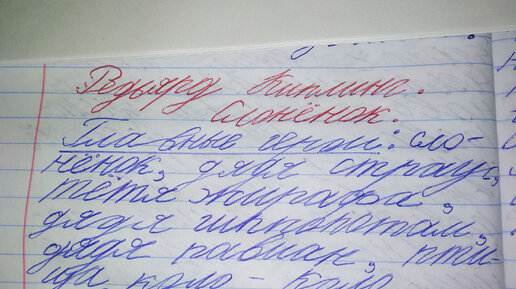 Редьярд Киплинг.
Слонёнок.
Главные герои: сло-
нёнок, дядя страус,
тётя жирафа,
дядя гиппопотам,
дядя павиан, пти-
ца коло-коло